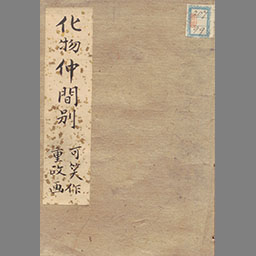 化物仲間別
可笑作
重政画